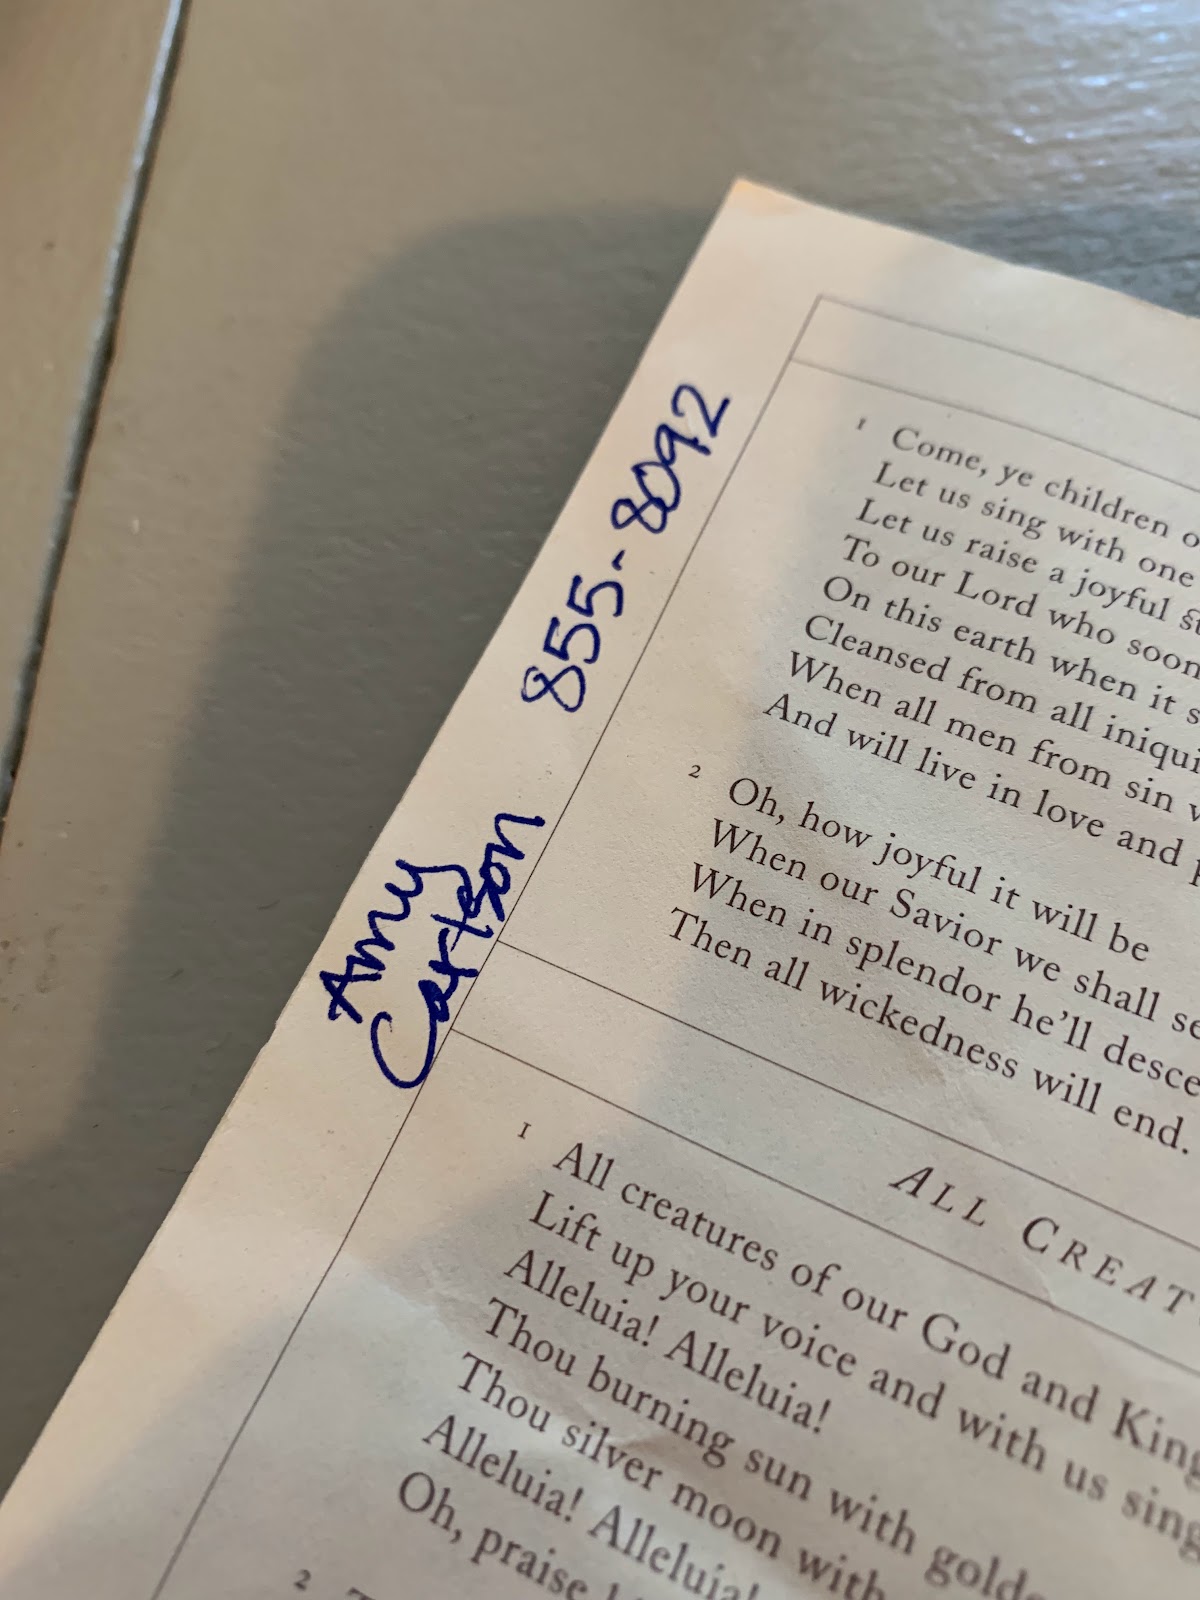 Amy 855-8092
Carlson
1 Come, ye children o
Let us sing with one
Let us raise a joyful
To our Lord who soon
On this earth when it s
Cleansed from all iniqui
When all men from sin w
And will live in love and
2 Oh, how joyful it will be
When our Savior we shall se
When in splendor he'll desce
Then all wickedness will end.
ALL CREAT
1 All creatures of our God and King
Lift up your voice and with us sing
Alleluia! Alleluia!
Thou burning sun with golde
Thou silver moon with
Alleluia! Alleluia!
Oh, praise
2